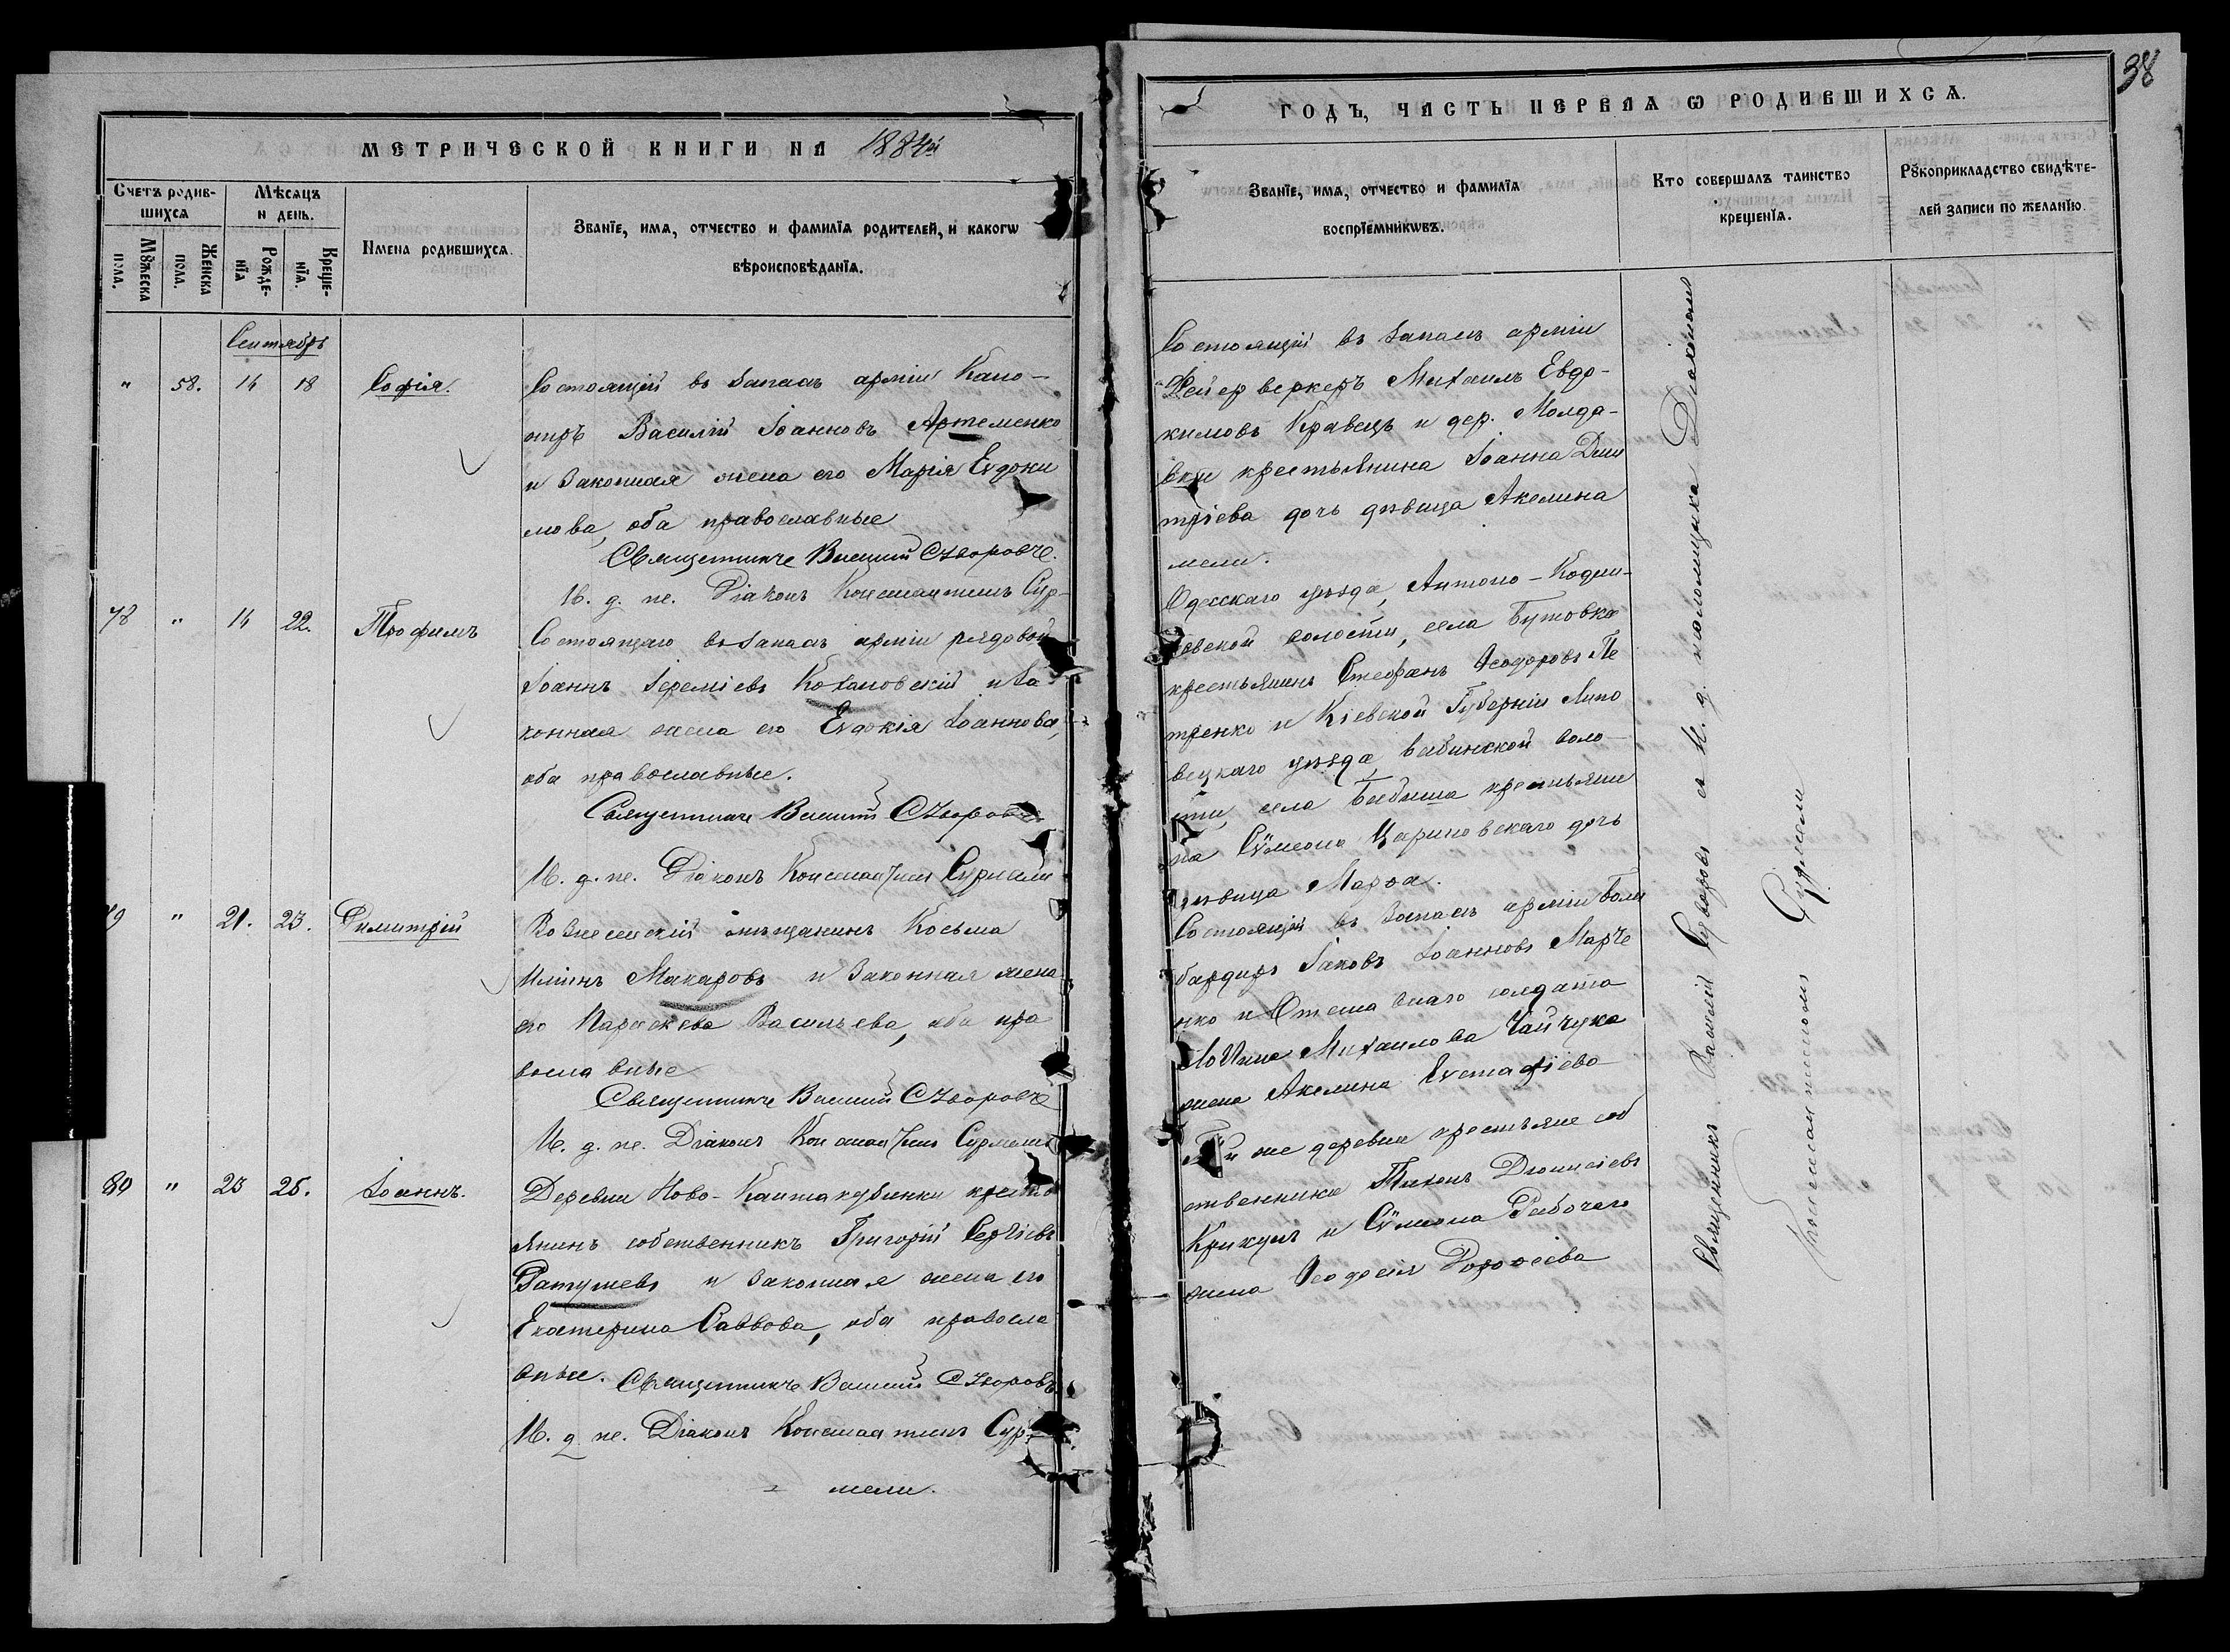 МЕТРИЧЕСКОЙ КНИГИ НА 1884й
Счетъ родив-
шихся
Мѣсяцъ
и день.
Мꙋжеска
пола.
Женска
пола.
Рожде-
нїя
Креще-
нїя.
Имена родившихся.
Званїе, имя, отчество и фамилїя родителей, и какогѡ
вѣроисповѣданїя.
Сентябрь
" 58. 14 18 Софія.
Состоящій въ запасѣ арміи Кано-
ниръ Василій Іоанновъ Артеменко
и законная жена его Марія Евдоки
мова, оба православные
Священникъ Василій Суворовъ.
И. д. пс. Діаконъ Константинъ Сур-
78 " 14 22. Трофимъ
Состоящаго въ запасѣ арміи рядовой
Іоаннъ Іереміевъ Кохановскій и за
конная жена его Евдокія Іоаннова,
оба православные.
Священникъ Василій Суворовъ
И. д. пс. Діаконъ Константинъ Сурмели
79 " 21. 23. Димитрій
Вознесенскій мѣщанинъ Косьма
Ильинъ Макаровъ и законная жена
его Параскева Васильева, оба пра
вославные
Священникъ Василій Суворовъ
И. д. пс. Діаконъ Константинъ Сурмели
80 " 23 25. Іоаннъ.
Деревни Ново-Кантакузенки кресть
янинъ собственникъ Григорій Сергіевъ
Ратушевъ и законная жена его
Екатерина Саввова, оба правосла
вные. Священникъ Василій Суворовъ
И. д. пс. Діаконъ Константинъ Сур-
мели.
38
ГОДЪ, ЧАСТЬ ПЕРВАЯ Ѡ РОДИВШИХСЯ.
Званїе, имя, отчество и фамилїя
воспрїемникѡвъ.
Кто совершалъ таинство
крещенїя.
Рꙋкоприкладство свидѣте-
лей записи по желанїю.
Состоящій въ запасѣ арміи
Фейерверкеръ Михаилъ Евдо-
кимовъ Кравецъ и дер. Молда-
вки крестьянина Іоанна Дими
тріева дочь дѣвица Акелина
мели.
Одесскаго уѣзда, Антоно-Кодин-
цевской волости, села Бутовка
крестьянинъ Стефанъ Ѳеодоровъ Пе
тренко и Кіевской Губерніи Липо
вецкаго уѣзда воло
сти, села крестьяни
на Сѵмеона Цариновскаго дочь
дѣвица Марѳа.
Состоящій въ запасѣ арміи бом
бардиръ Іаковъ Іоанновъ Марче
нко и Отставнаго солдата
Логина Михаилова Чайчука
жена Акелина Евстафіева
Той же деревни крестьяне соб
ственники Тихонъ Діонисіевъ
Крикунъ и Сѵмеона Рабочаго
жена Ѳеодосія Дороѳеева
Священникъ Василій Суворовъ съ И. д. псаломщика Діакономъ
Константиномъ Сурмели